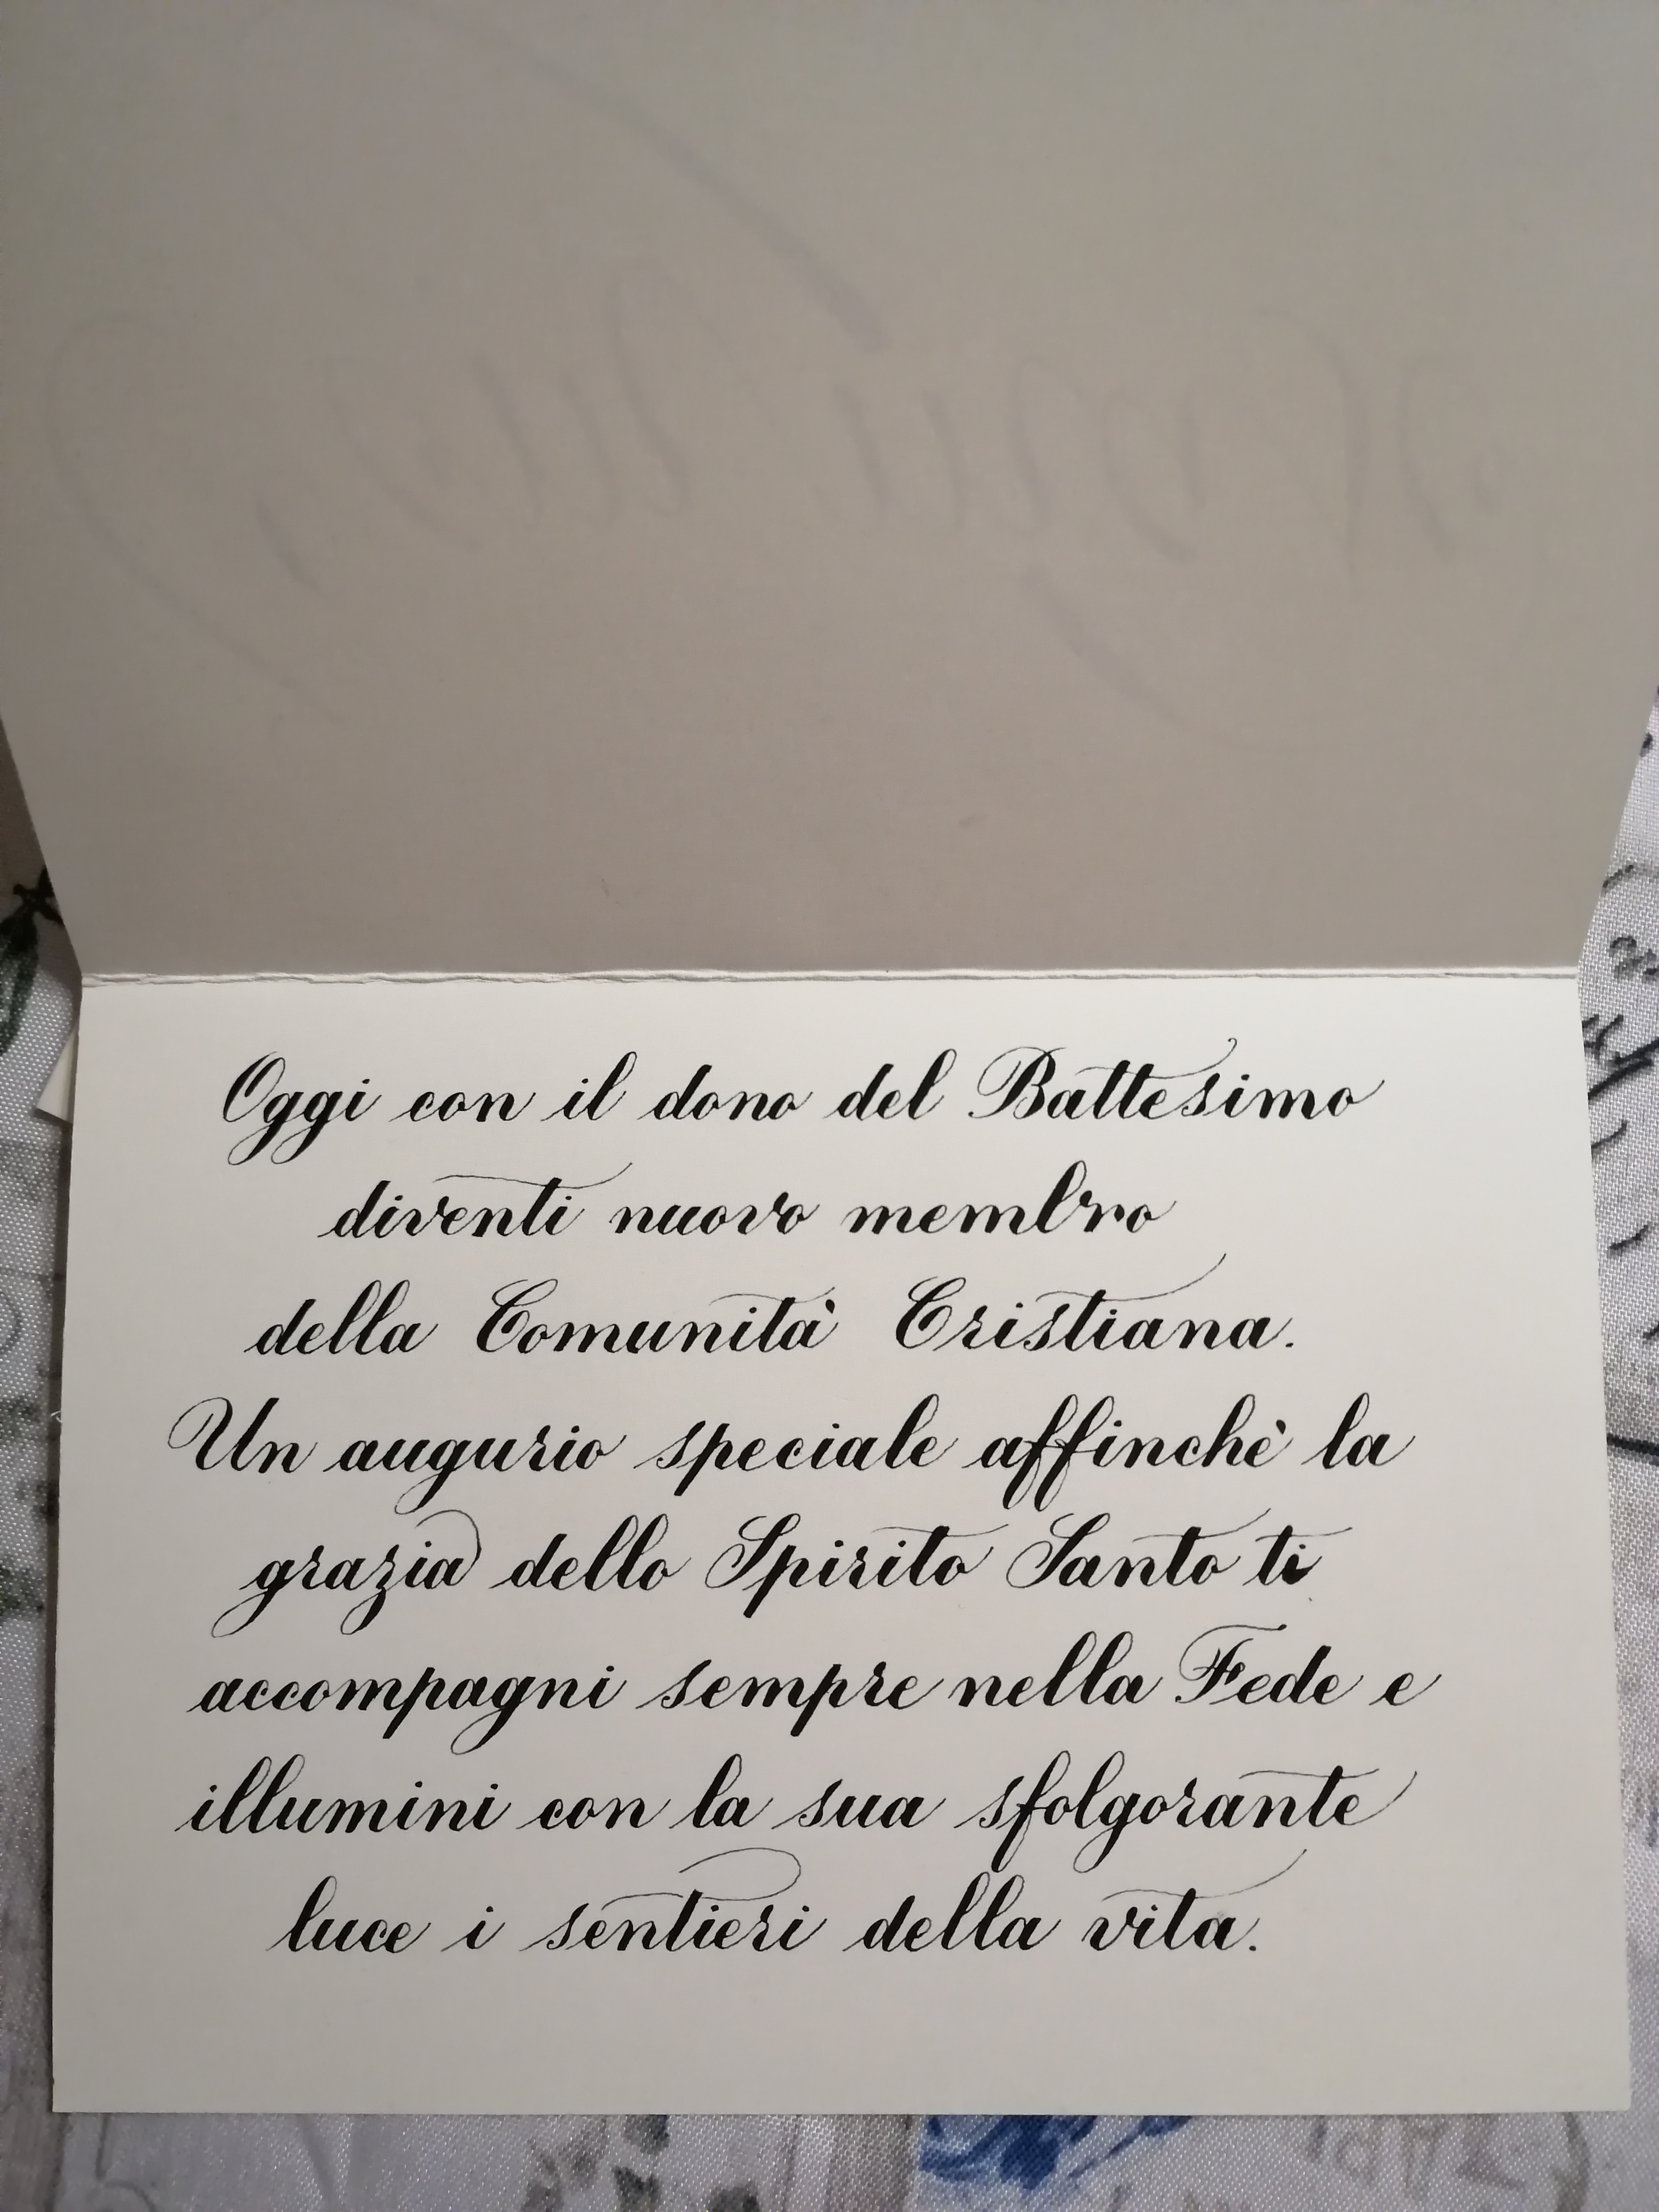 Oggi con il dono del Battesimo
diventi nuovo membro
della Comunità Cristiana.
Un augurio speciale affinchè la
grazia dello Spirito Santo ti
accompagni sempre nella Fede e
illumini con la sua sfolgorante
luce i sentieri della vita.